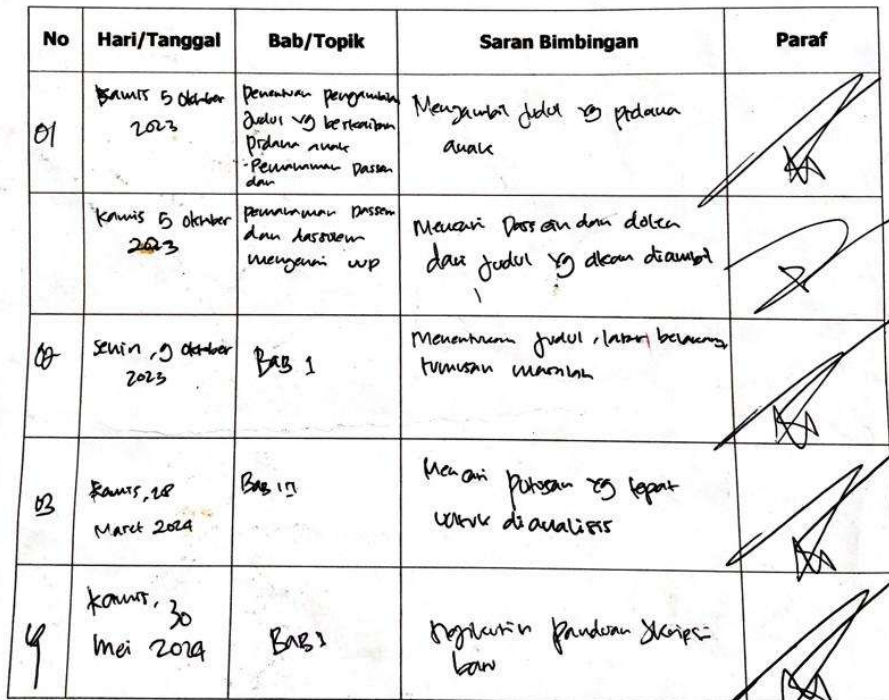 No Hari/Tanggal Bab/Topik Saran Bimbingan Paraf
01
Kamis 5 Oktober
2023
penentuan pengambilan
judul yg berkaitan
pidana anak
- Pemahaman Dassen
dan
Mengambil judul yg pidana
anak
Kamis 5 Oktober
2023
pemahaman Dassen
dan dassolen
mengenai
Mencari Dassein dan
dari judul yg akan diambil
02
Senin, 9 Oktober
2023
BAB 1
Menentukan judul, latar belakang
rumusan masalah
03
Kamis, 28
Maret 2024
BAB
Mencari putusan yg tepat
untuk dianalisis
4
Kamis, 30
Mei 2024
BAB 1
panduan skripsi
baru